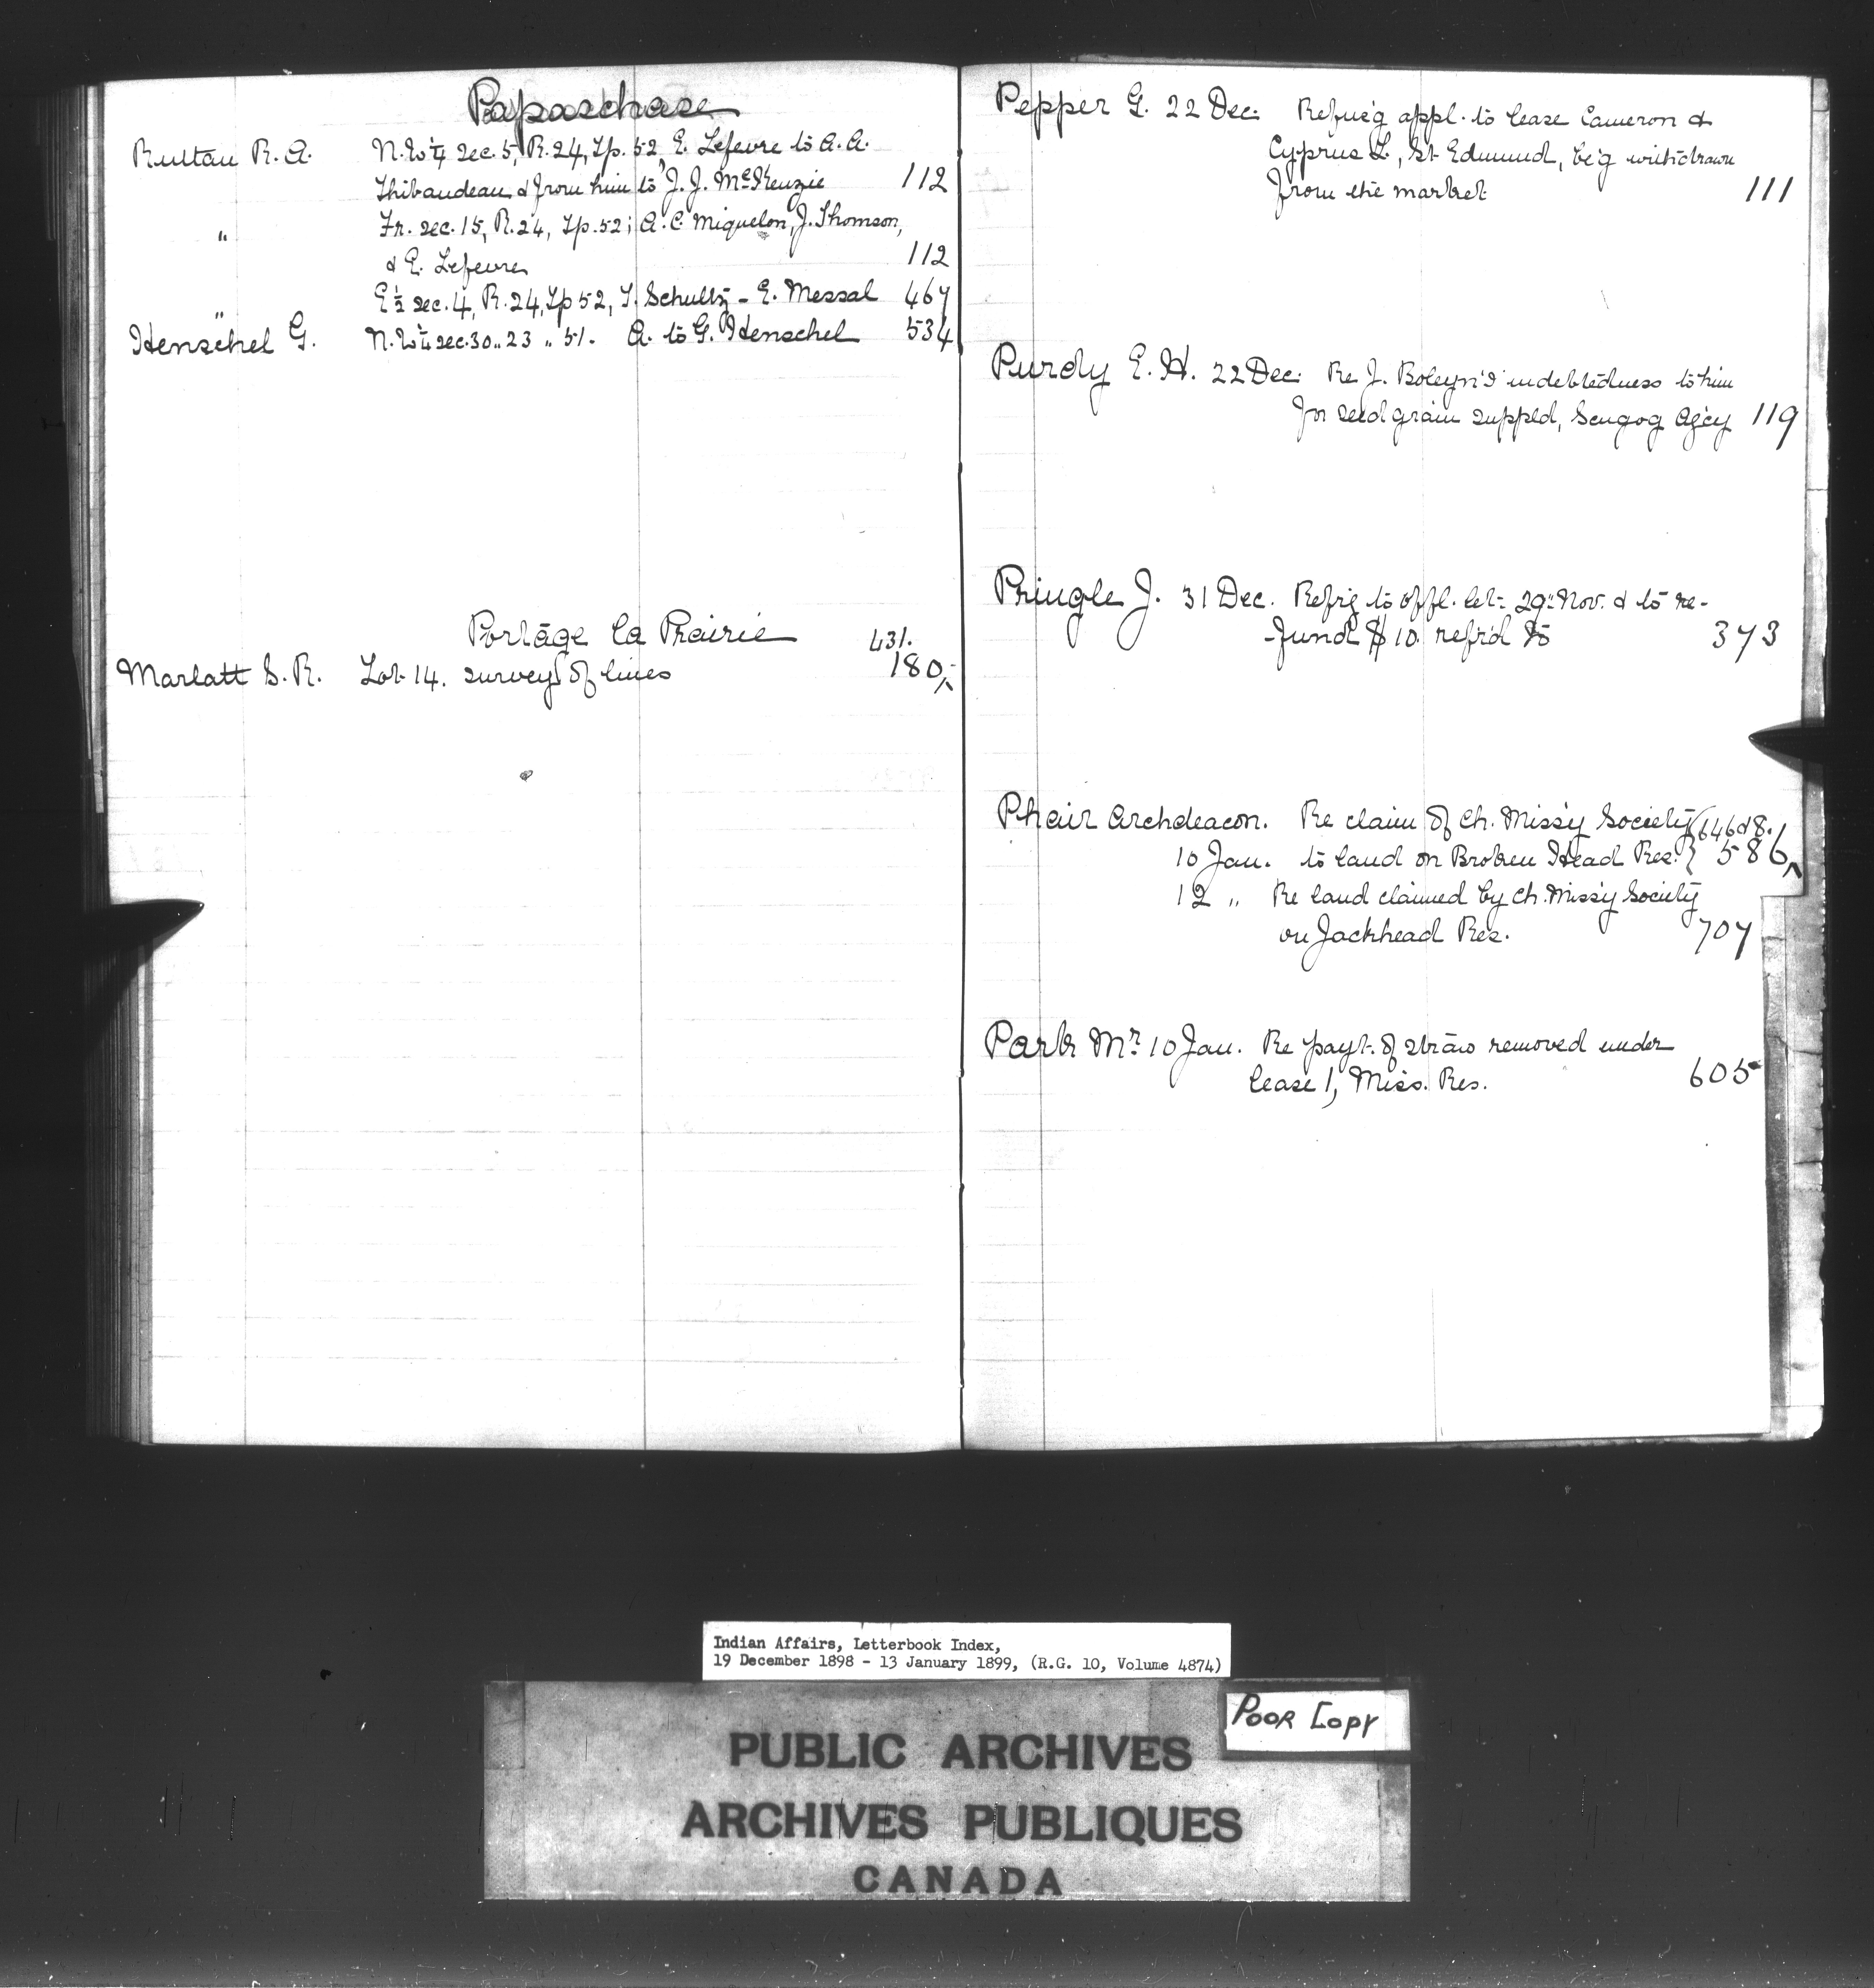 Papaschase
Ruttan R. A. N.W¼ sec. 5, R. 24, Tp. 52, E. Lefevre to A. A.
Thibaudeau & from him to J. J. McKenzie 112
" Fr. sec. 15, R. 24, Tp. 52; A. C. Miquelon, J. Thomson,
& E. Lefevre 112
" E½ sec. 4, R. 24, Tp 52, T. Schultz - E. Messal 467
Henschel G. N.W¼ sec. 30 " 23 " 51. A. to G. Henschel 534
Portage la Prairie 431.
Marlatt S. R. Lot 14. survey of lines 180,
Pepper G. 22 Dec. Refus'g appl. to lease Cameron &
Cyprus L, St. Edmund, be'g withdrawn
from the market 111
Purdy E. H. 22 Dec. Re J. Boleyn's indebtedness to him
for seed grain suppld, Scugog Ag'cy 119
Pringle J. 31 Dec. Refrg to offl. let. 29th Nov. & to re-
fund $10 refr'd to 373
Phair Archdeacon. Re claim of Ch. Miss'y Society (646 & 8.
10 Jan. to land on Broken Head Res. } 586
12 " Re land claimed by Ch. Miss'y Society
on Jackhead Res. 707
Park Mr. 10 Jan. Re payt. of straw removed under
lease 1, Miss. Res. 605
Indian Affairs, Letterbook Index,
19 December 1898 - 13 January 1899, (R.G. 10, Volume 4874)
POOR COPY
PUBLIC ARCHIVES
ARCHIVES PUBLIQUES
CANADA